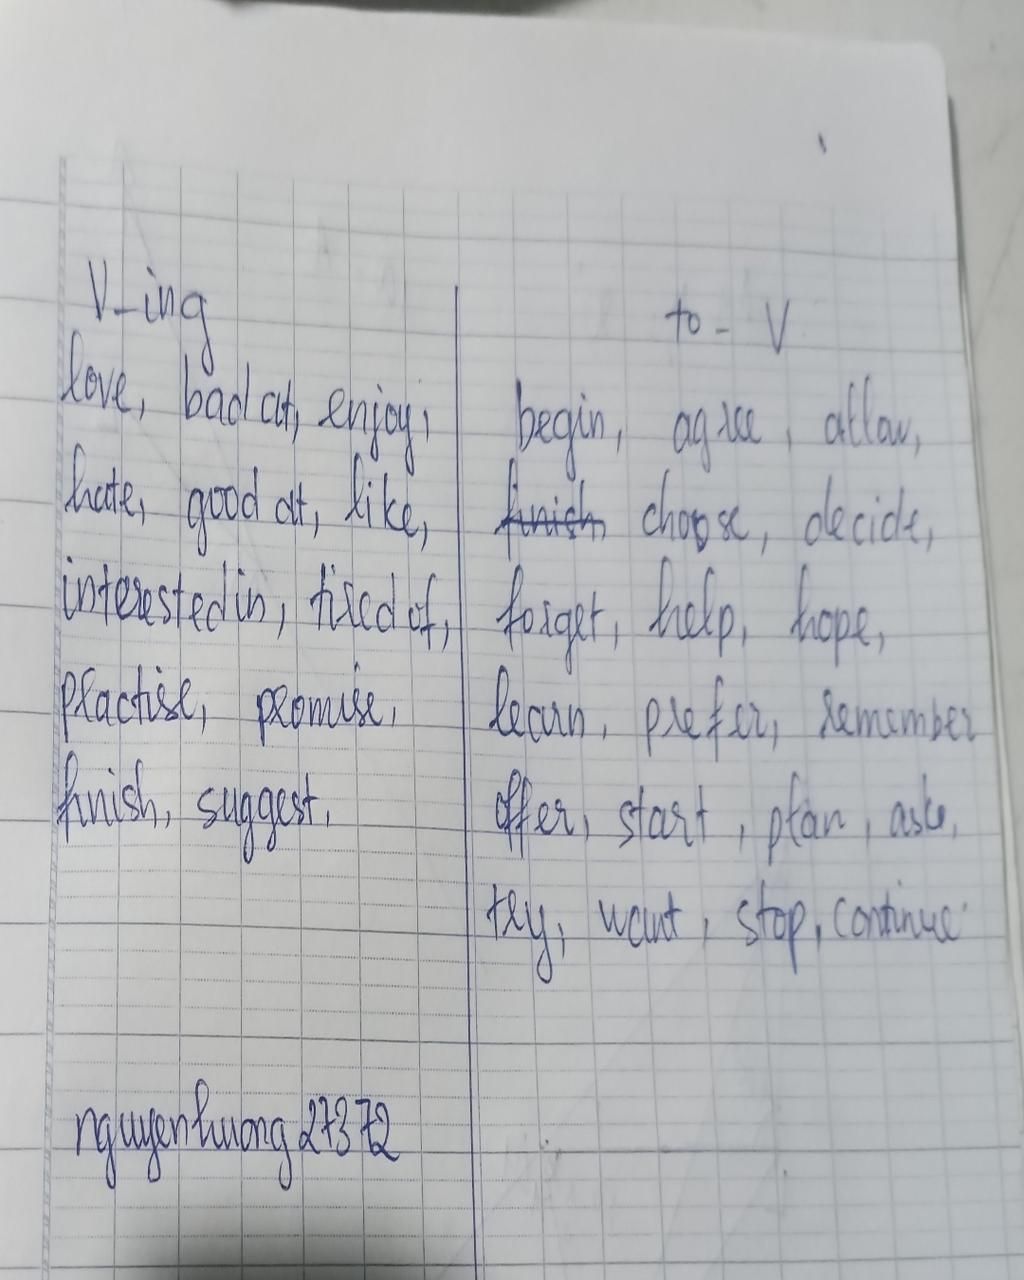 V-ing
love, bad at, enjoy,
hate, good at, like,
interested in, tired of,
practise, promise,
finish, suggest,
to - V
begin, agree, allow,
finish, choose, decide,
forget, help, hope,
learn, prefer, remember
offer, start, plan, ask,
try, want, stop, continue
nguyenhuong27372